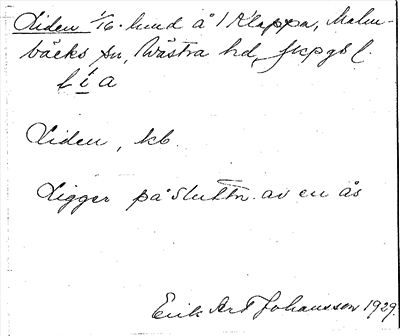 Liden 1/16. hmd å 1 Klappa, Malm-
bäcks sn, Västra hd, Jkpgs l.
l i a
Liden, kb.
Ligger på sluttn. av en ås
Erik Arst Johansson 1929.